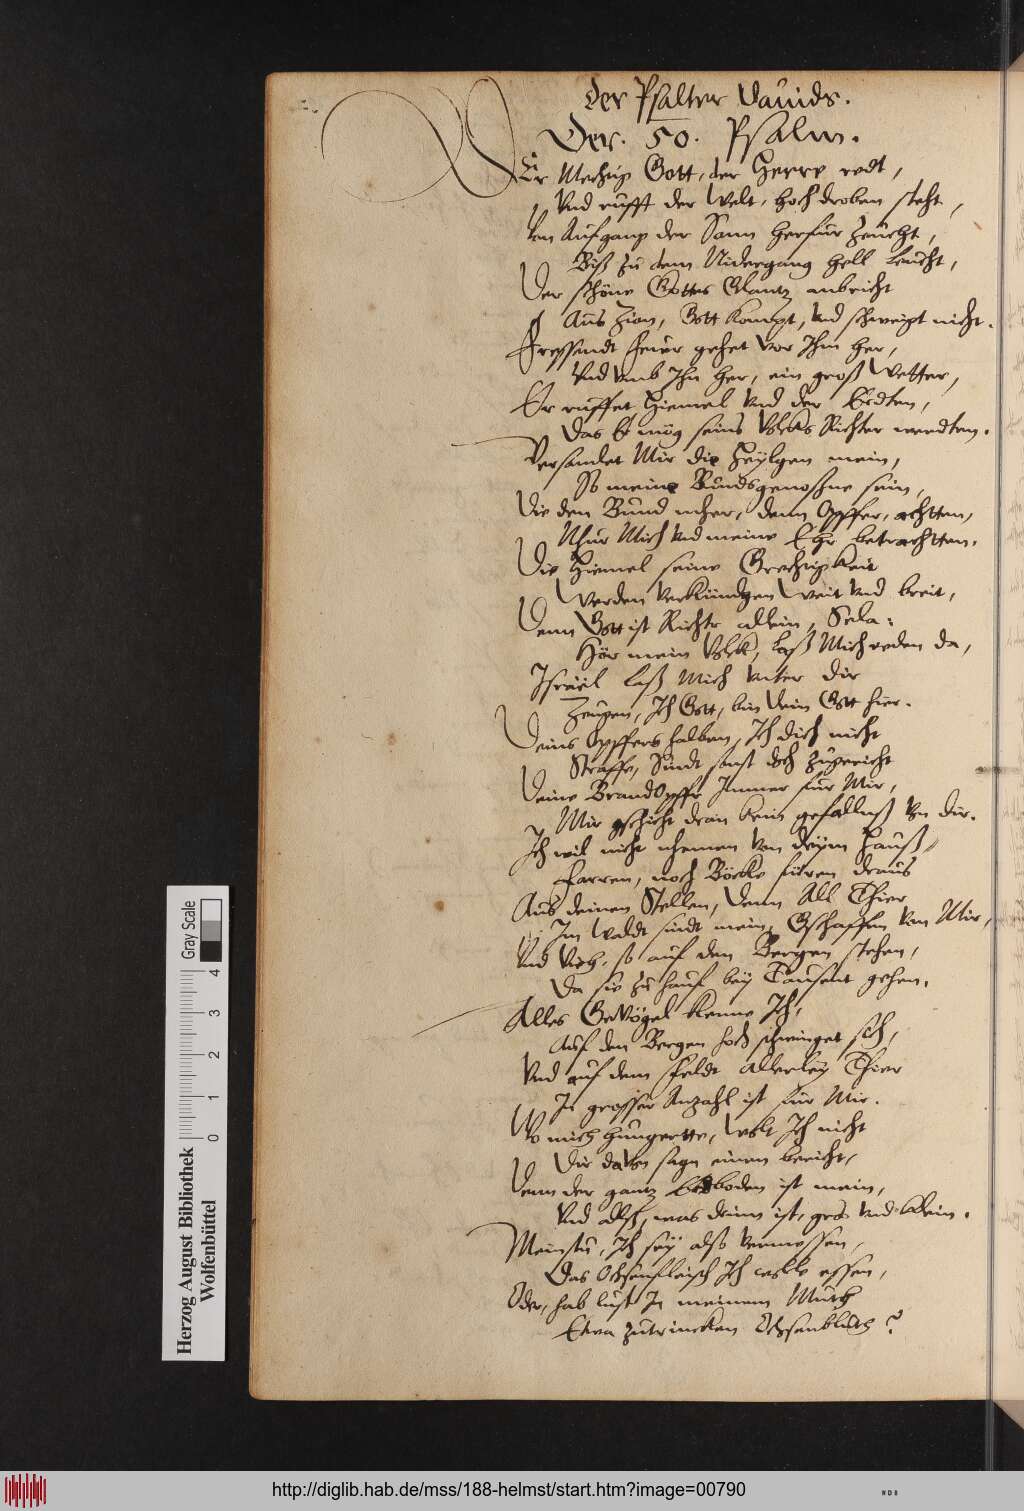 der Psalter Dauids.
Der. 50. Psalm.
Der Mechtig Gott, der Herre redt,
Vnd rufft der Welt, hoch droben steht,
Von Aufgang der Sonn herfür zeucht,
Biß zu dem Nidergang hell leucht,
Der schöne Gottes Glantz anbricht
Aus Zion, Gott kompt, vnd schweigt nicht.
Fressendt feuer gehet vor Ihm her,
Vnd vmb Ihn her, ein groß Wetter,
Er ruffet Hiemel vnd der Erdten,
Das Er mög seins Volcks Richter werdten.
Versamlet Mir die Heyligen mein,
So meine Bundsgenoßne sein,
Die den Bund meher, denn Opffer, achtten,
Nhur Mich vnd meine Ehr betrachtten.
Die Hiemel seine Grechtigkeit
Werden verkündgen Weit vnd breit,
Denn Gott ist Richtr allein, Sela:
Hör mein Volck, laß Mich reden da,
Israël laß Mich vnter dir
Zeugen, Ich Gott, bin Dein Gott hier.
Deins Opffers halben, Ich dich nicht
Straffe, Sindt sonst doch zugericht
Deine BrandOpffr Immer für Mir,
Mir gschicht dran kein gefallnß von dir.
Ich wil nicht nhemen von deym Hauß,
Farren, noch Böcke füren draus
Aus deinen Stellen, Denn All Thier
Im Waldt sindt mein, Gschaffen von Mir,
Vnd Viech, so auf den Bergen stehen,
Da sie zu hauf bey Tausent gehen.
Alles GeVögel kenne Ich,
Auf den Bergen hoch schwinget sich,
Vnd auf dem Feldt allerley Thier
In grosser Anzahl ist für Mir.
Wo mich hungrette, Wolt Ich nicht
Dir davon sagn einen bericht,
Denn der gantz Erdboden ist mein,
Vnd alls, was drinn ist, gros vnd klein.
Meinstu, Ich sey also vermessen,
Das Ochsenfleisch Ich wolle essen,
Oder, hab lust In meinem Muth
Etwa zutrincken Ochsenbluth?
Herzog August Bibliothek
Wolfenbüttel
0 1 2 3 4
Gray Scale
http://diglib.hab.de/mss/188-helmst/start.htm?image=00790